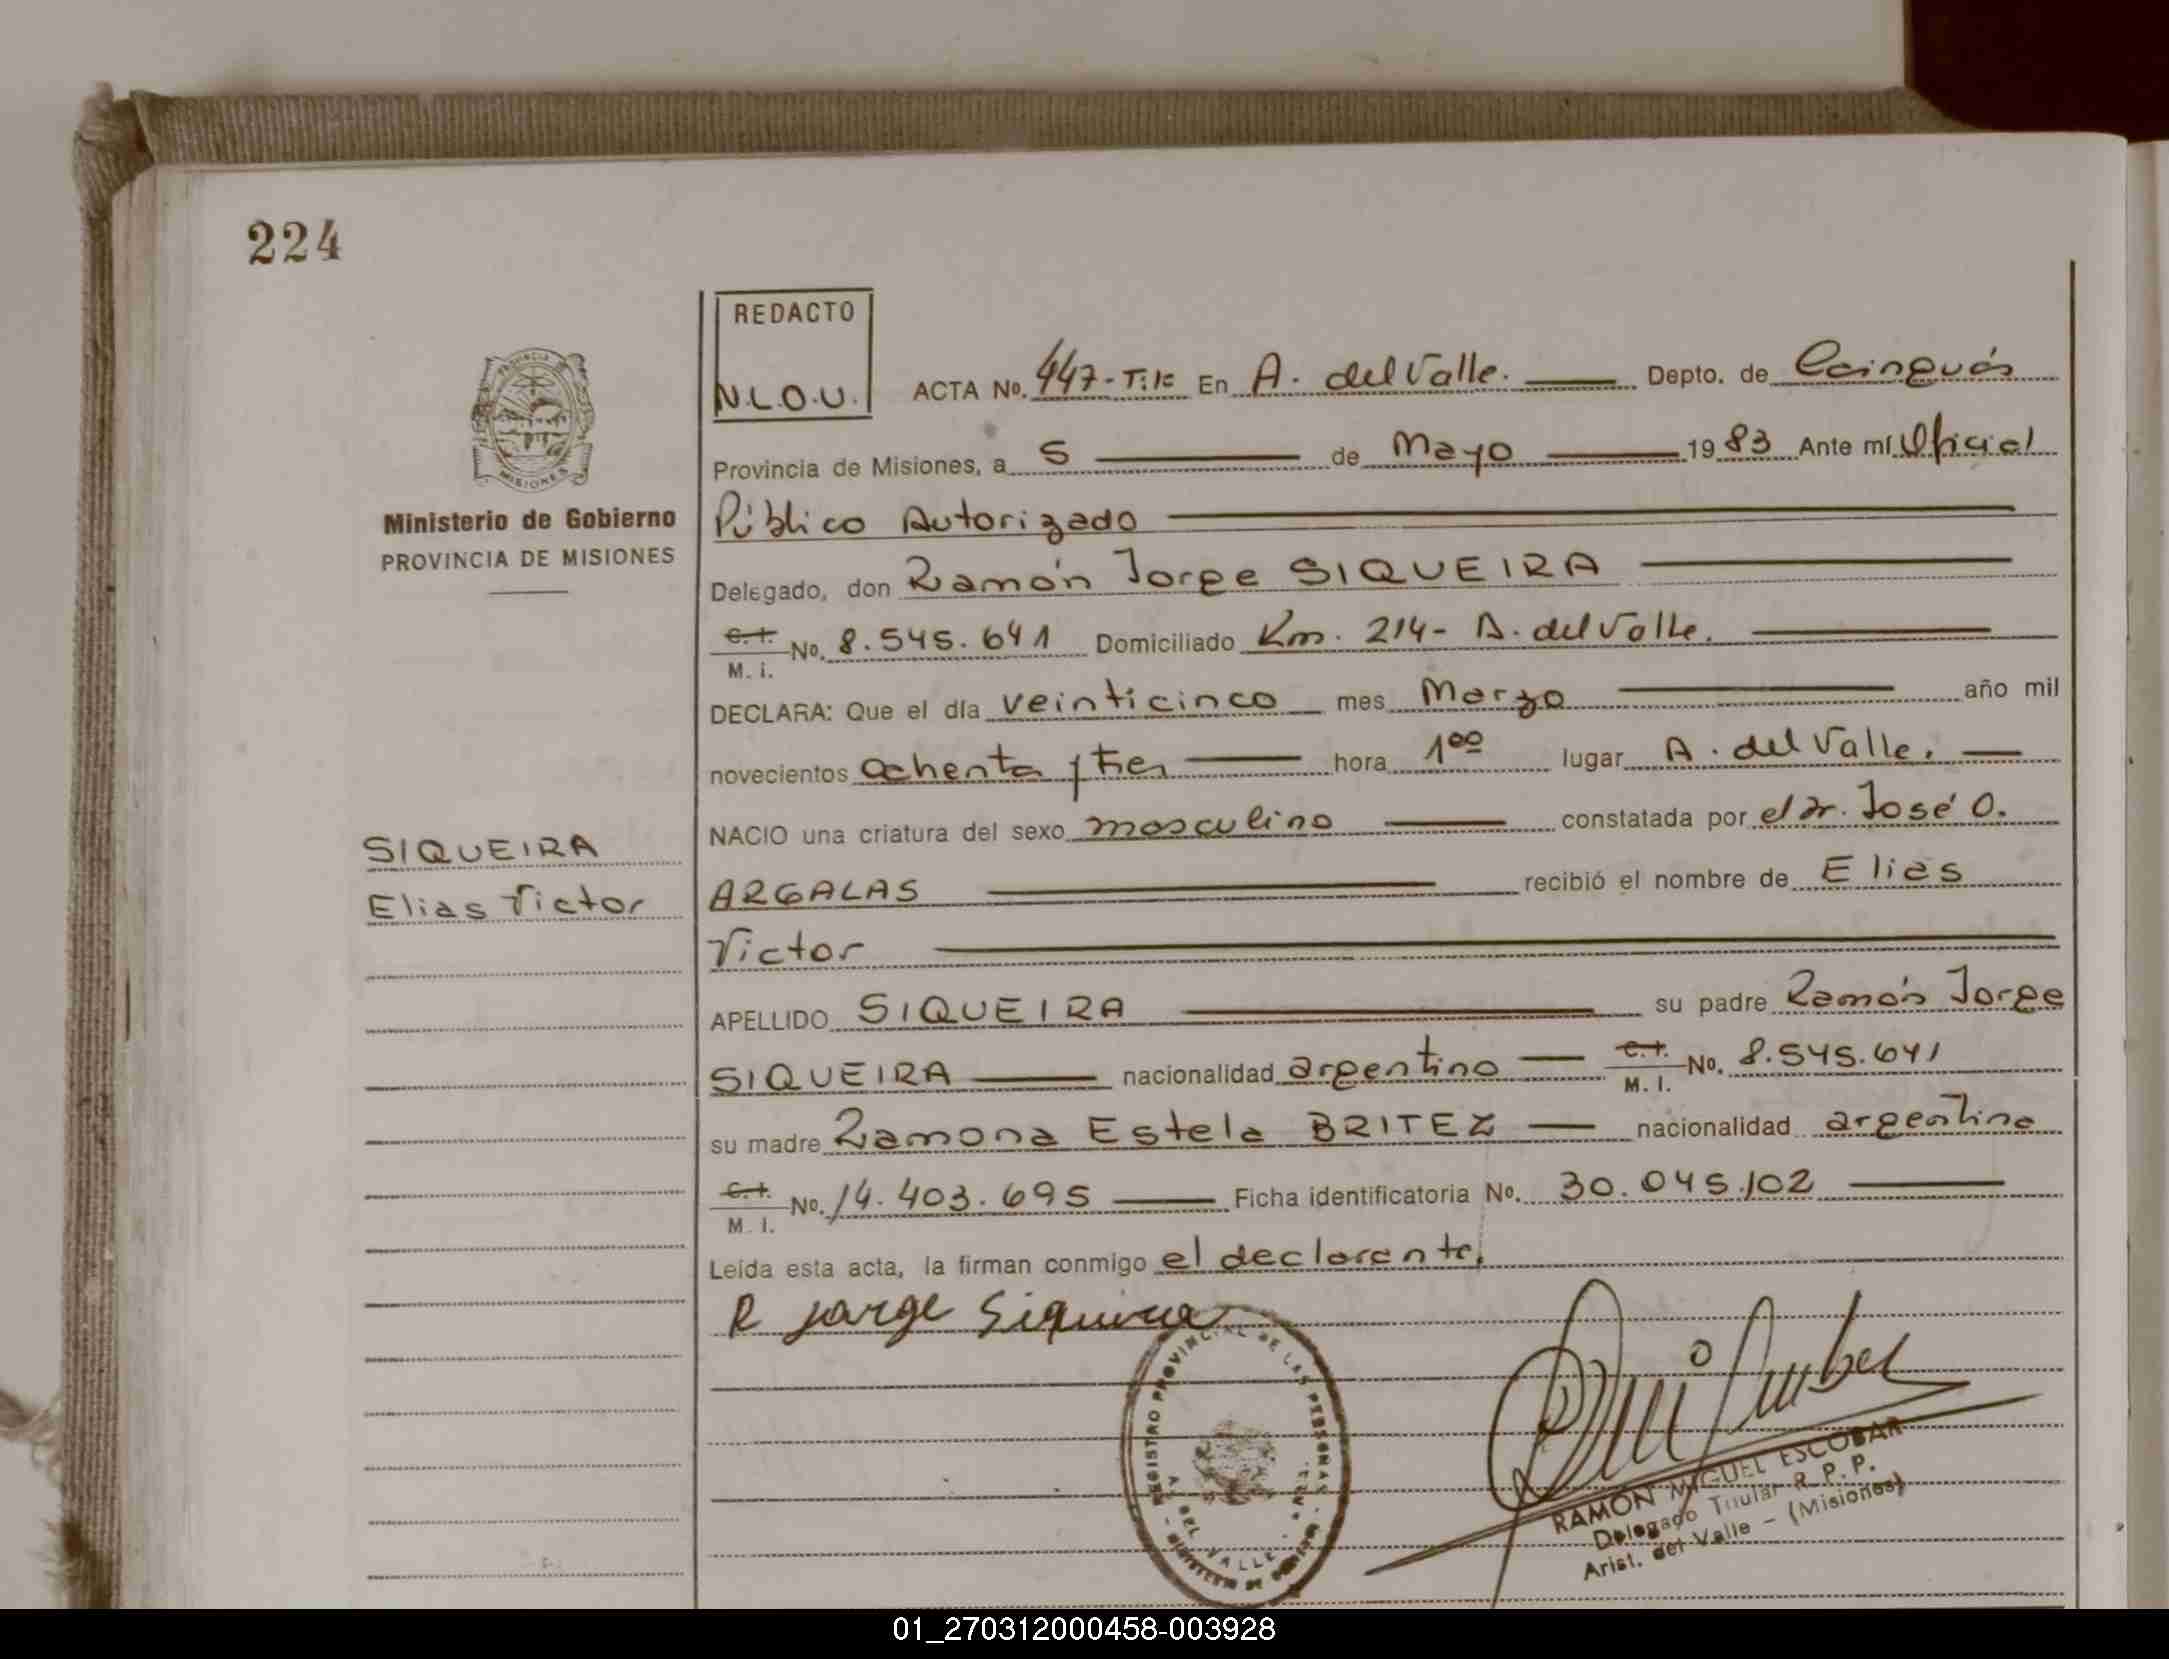 224
REDACTO
N.L.O.U.
ACTA No. 447-T:1c En A. del Valle. Depto. de Cainguás
Provincia de Misiones, a 5 de Mayo 1983 Ante mí Oficial
Ministerio de Gobierno
PROVINCIA DE MISIONES
Público Autorizado
Delegado, don Ramón Jorge SIQUEIRA
C.I. M.I. No. 8.545.641 Domiciliado Km. 214- A. del Valle.
DECLARA: Que el día veinticinco mes Marzo año mil
novecientos ochenta y tres hora 1⁰⁰ lugar A. del Valle.
NACIO una criatura del sexo masculino constatada por el Dr. José O.
SIQUEIRA
Elias Victor
ARGALAS recibió el nombre de Elias
Victor
APELLIDO SIQUEIRA su padre Ramón Jorge
SIQUEIRA nacionalidad argentino C.I. M.I. No. 8.545.641
su madre Ramona Estela BRITEZ nacionalidad argentina
C.I. M.I. No. 14.403.695 Ficha identificatoria No. 30.045.102
Leída esta acta, la firman conmigo el declarante.
R Jorge Siqueira
REGISTRO PROVINCIAL DE LAS PERSONAS
DEL VALLE
RAMON MIGUEL ESCOBAR
Delegado Titular R.P.P.
Arist. del Valle - (Misiones)
01_270312000458-003928